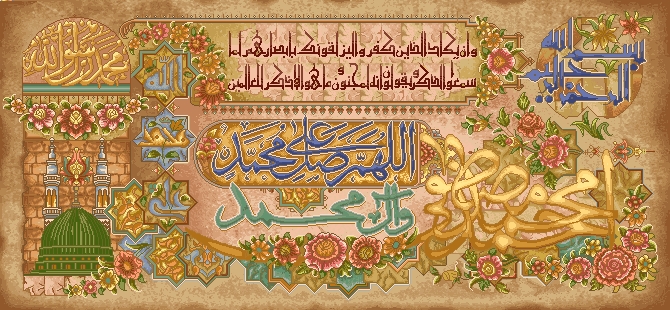 بسم الله
الرحمن الرحيم
وان يكاد الذين كفروا ليزلقونك بابصارهم لما
سمعوا الذكر و يقولون انه لمجنون و ما هو الا ذكر للعالمين
محمد رسول الله
الله
محمد
علي
اللهم صل على محمد
وآل محمد